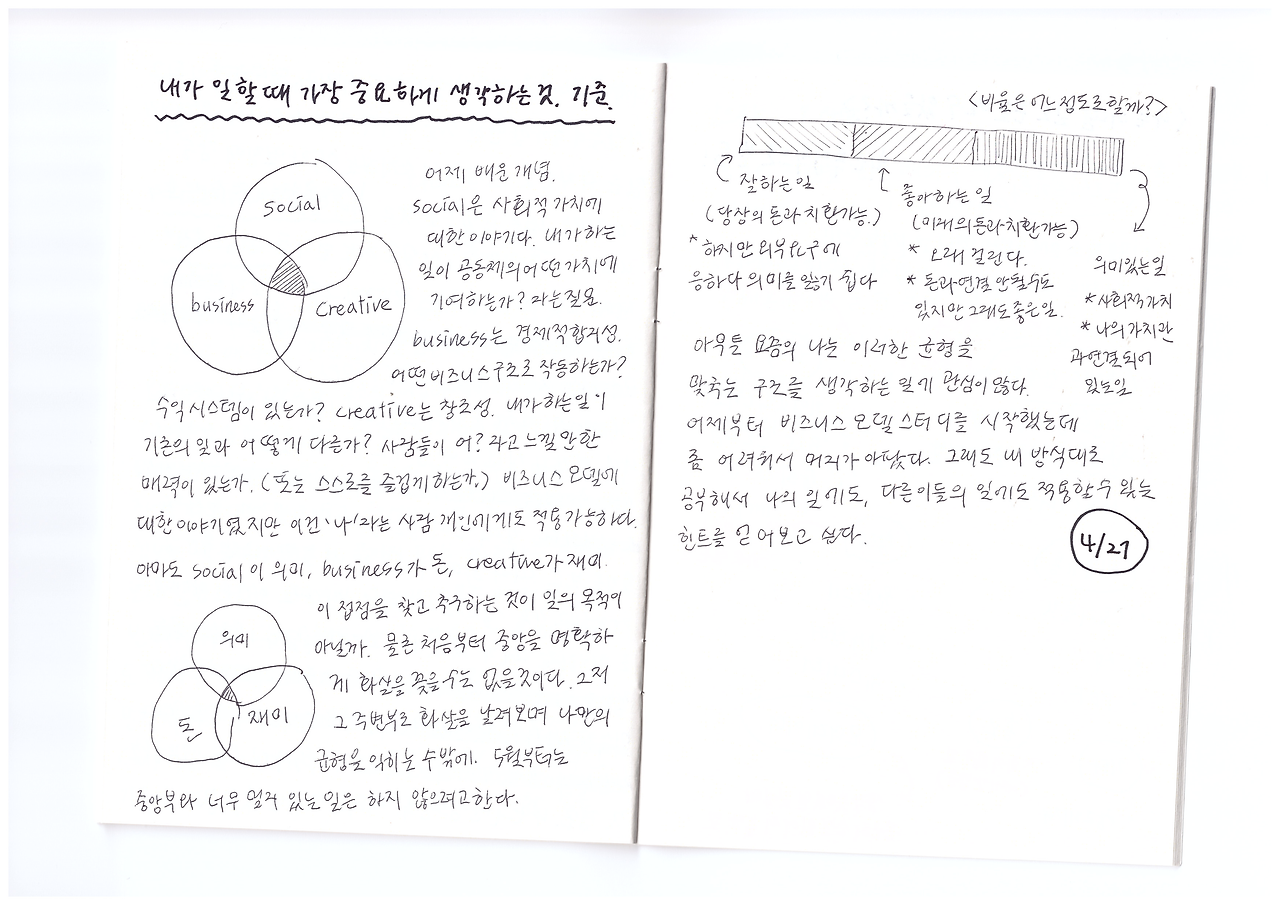 내가 일할때 가장 중요하게 생각하는것. 기준.
social
business
creative
어제 배운 개념.
social은 사회적 가치에
대한 이야기다. 내가 하는
일이 공동체의 어떤 가치에
기여하는가? 라는 질문.
business는 경제적합리성.
어떤 비즈니스 구조로 작동하는가?
수익 시스템이 있는가? creative는 창조성. 내가 하는 일이
기존의 일과 어떻게 다른가? 사람들이 어? 라고 느낄 만한
매력이 있는가. (또는 스스로를 즐겁게 하는가.) 비즈니스 모델에
대한 이야기였지만 이건 '나'라는 사람 개인에게도 적용 가능하다.
아마도 social이 의미, business가 돈, creative가 재미.
의미
돈
재미
이 접점을 찾고 추구하는 것이 일의 목적이
아닐까. 물론 처음부터 중앙을 명확하
게 화살을 꽂을 수는 없을것이다. 그저
그 주변부로 화살을 날려보며 나만의
균형을 익히는 수밖에. 5월부터는
중앙부와 너무 멀리 있는 일은 하지 않으려고 한다.
<비율은 어느정도로 할까?>
잘하는 일
(당상의 돈과 치환가능.)
* 하지만 외부요구에
응하다 의미를 잃기 쉽다
좋아하는 일
(미래의 돈과 치환가능)
* 오래 걸린다.
* 돈과 연결 안될수도
있지만 그래도 좋은 일.
의미있는 일
* 사회적 가치
* 나의 가치관
과 연결되어
있는 일
아무튼 요즘의 나는 이러한 균형을
맞추는 구조를 생각하는 일에 관심이 많다.
어제부터 비즈니스 모델 스터디를 시작했는데
좀 어려워서 머리가 아팠다. 그래도 내 방식대로
공부해서 나의 일에도, 다른이들의 일에도 적용할 수 있는
힌트를 얻어보고 싶다.
4/27